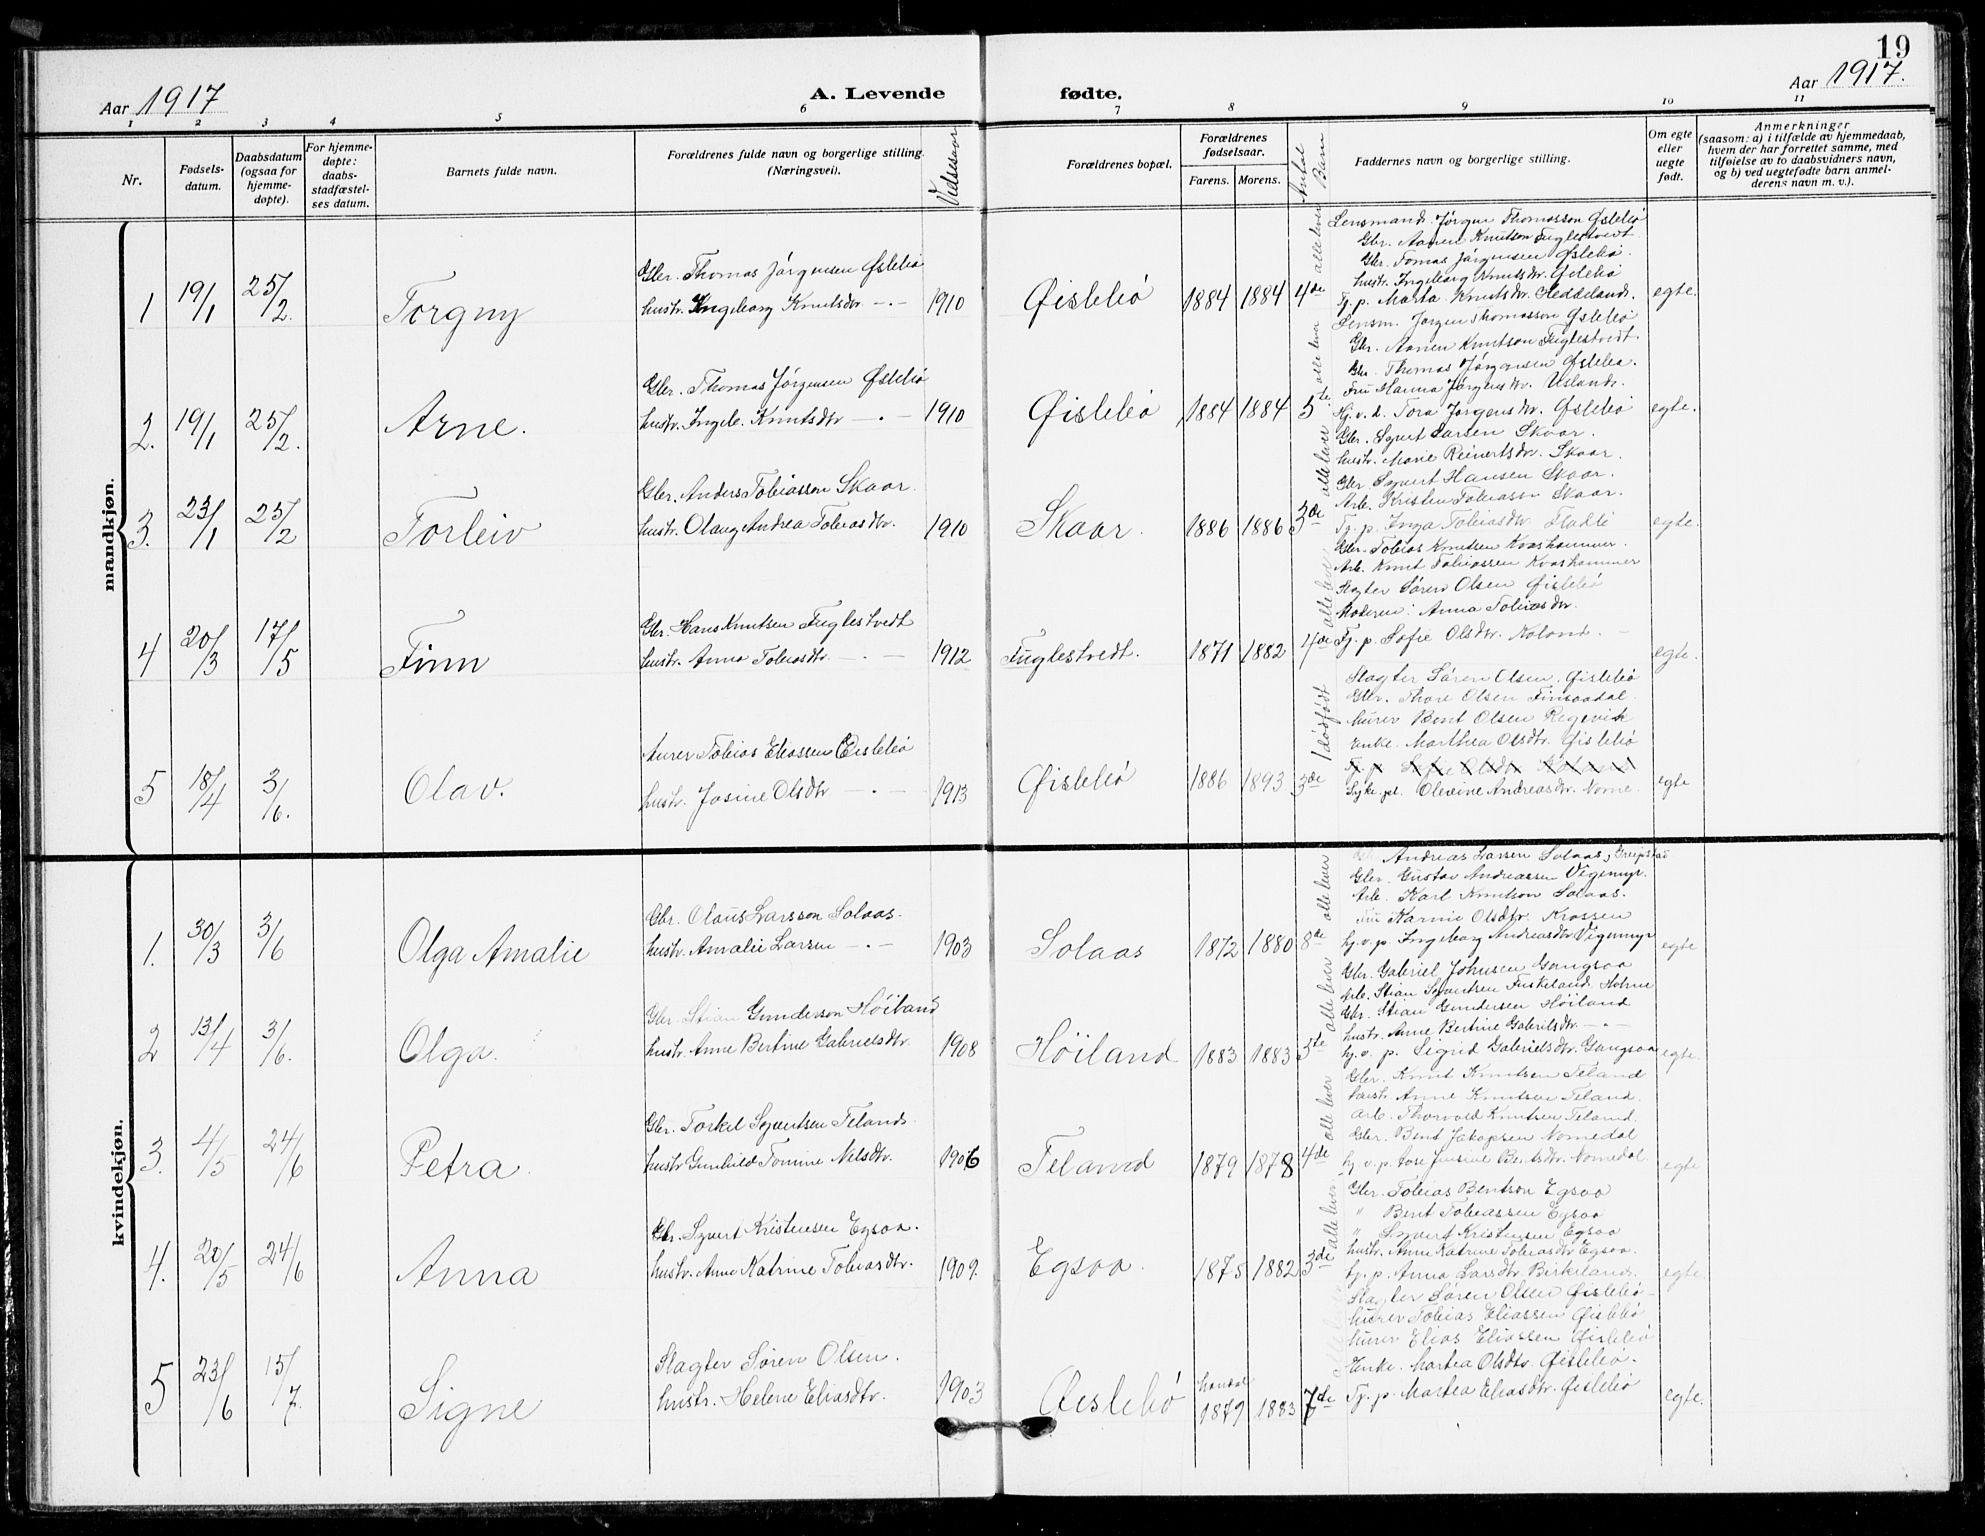 19
Aar 1917
A. Levende fødte.
Aar 1917.
1 2 3 4 5 6 7 8 9 10 11
Nr.
Fødsels-
datum.
Daabsdatum
(ogsaa for
hjemme-
døpte).
For hjemme-
døpte:
daabs-
stadfæstel-
ses datum.
Barnets fulde navn.
Forældrenes fulde navn og borgerlige stilling.
(Næringsvei).
Vielsesaar
Forældrenes bopæl.
Forældrenes
fødselsaar.
Farens. Morens.
Antal Barn
Faddernes navn og borgerlige stilling.
Om egte
eller
uegte
født.
Anmerkninger
(saasom: a) i tilfælde av hjemmedaab,
hvem der har forrettet samme, med
tilføielse av to daabsvidners navn,
og b) ved uegtefødte barn anmel-
derens navn m. v.).
mandkjøn.
1 19/1 25/2. Torgny
Gbr. Thomas Jørgensen Øslebø
hustr. Ingeborg Knutsdtr. -"- 1910
Øislebø 1884 1884 4de alle lever
Lensmand. Jørgen Thomasson Øslebø
Gbr. Aanen Knutson Fuglestvedt.
Gbr. Tomas Jørgensen Øslebø.
hustr. Ingeborg Knutsdtr. Øslebø
Tj. p. Marta Knutsdtr. Heddeland.
egte.
2. 19/1 25/2. Arne.
Gbr. Thomas Jørgensen Øslebø
hustr. Ingeb. Knutsdtr -"- 1910
Øislebø 1884 1884 5te alle lever
Lensm. Jørgen Thomasson Øslebø
Gbr. Aanen Knutson Fuglestvedt.
Gbr. Thomas Jørgensen Øslebø.
Fru Hanna Jørgensdtr. Usland.
Hj. v. d. Tora Jørgensdtr. Øslebø
egte.
3. 23/1 25/2 Torleiv
Gbr. Anders Tobiasson Skaar.
hustr. Olaug Andrea Tobiasdtr. 1910
Skaar. 1886 1886 3de alle lever
Gbr. Syvert Larsen Skaar.
hustr. Marie Reinertsdtr. Skaar.
Gbr. Syvert Hansen Skaar.
Arb. Kristen Tobiasson Skaar.
Tj. p. Inga Tobiasdtr.
egte.
4 20/3 17/5 Finn
Gbr. Hans Knutsen Fuglestvedt
hustr. Anna Tobiasdtr. -"- 1912
Fuglestvedt. 1871 1882 4de alle lever
Gbr. Tobias Knutsen Kvashammer.
Arb. Knut Tobiassen Kvashammer
Slagter Søren Olsen Øislebø
Moderen: Anna Tobiasdtr.
Tj. p. Sofie Olsdtr. Noland. -
egte.
5 18/4 3/6. Olav.
Murer Tobias Eliassen Øislebø
hustr. Josine Olsdtr -"- 1913
Øislebø 1886 1893 3de 1 dødfødt
Slagter Søren Olsen. Øislebø
Gbr. Thore Olsen Finsaadal.
Murer Bent Olsen Regevik
Enke. Marthea Olsdtr. Øislebø
Tj. p. Sofie Olsdtr. Noland
Syke.pl. Olevine Andreasdtr. Nome.
egte
kvindekjøn.
1. 30/3 3/6 Olga Amalie
Gbr. Olaus Larsson Solaas.
hustr. Amalie Larsen -"- 1903
Solaas 1872 1880 8de alle lever
Andreas Larsen Solaas, Greipstad
Gbr. Gustav Andreassen Vigemyr.
Arb. Karl Knutson Solaas.
Fru Karine Olsdtr. Krossen
hj. v. p. Ingeborg Andreasdtr Vigemyr
egte
2 13/4 3/6. Olga.
Gbr. Stian Gunderson Høiland
hustr. Anne Bertine Gabrielsdtr. 1908
Høiland 1883 1883 5te alle lever
Gbr. Gabriel Johnsen Gangsaa
Arb. Stian Syvertsen Fuskeland, Holme
Gbr. Stian Gundersen Høiland
hustr. Anne Bertine Gabrielsdtr. -"-
hj. v. p. Sigrid Gabrielsdtr. Gangsaa
egte.
3. 4/5 24/6 Petra.
Gbr. Torkel Syvertsen Teland.
hustr Gunhild Tomine Nilsdtr. 1906
Teland 1879 1878 4de alle lever
Gbr. Knut Knutsen Teland
hustr. Anne Knutsen Teland.
Arb. Thorvald Knutsen Teland.
Gbr. Bent Jakopsen Nomedal
hj. v. p. Josine Bentsdtr. Nomedal.
egte
4. 20/5 24/6 Anna
Gbr. Syvert Kristensen Egsaa.
hustr. Anne Katrine Tobiasdtr. 1909.
Egsaa. 1875 1882 3de alle lever
Gbr. Tobias Bentson Egsaa
" Bent Tobiassen Egsaa
" Syvert Kristensen Egsaa
hustr. Anne Katrine Tobiasdtr Egsaa.
hj. p. Anna Larsdtr. Birkeland.
egte.
5 23/6 15/7. Signe
Slagter Søren Olsen.
hustr. Helene Eliasdtr. 1903
Øeslebø 1879 1883 7de alle lever
Slagter Søren Olsen Øislebø
Murer Tobias Eliassen Øislebø
Murer Elias Eliassen Øislebø
Enke. Martea Olsdtr. Øislebø.
Tj. p. Martea Eliasdtr. Øislebø
egte.